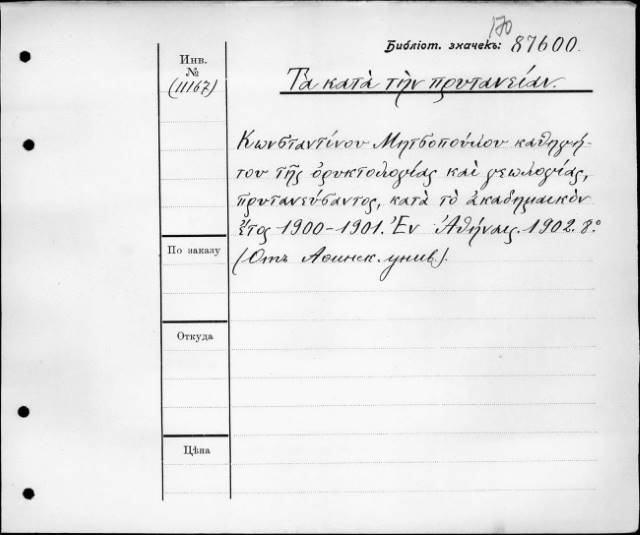 170
Библіот. значекъ: 87600.
Инв.
№
(11167)
Τὰ κατὰ τὴν πρυτανείαν.
Κωνσταντίνου Μητσοπούλου καθηγη-
τοῦ τῆς ὀρυκτολογίας καὶ γεωλογίας,
πρυτανεύσαντος, κατὰ τὸ ἀκαδημαικὸν
ἔτος 1900-1901. Ἐν Ἀθήναις. 1902. 8°
(Отъ Афинск. унив.).
По заказу
Откуда
Цѣна